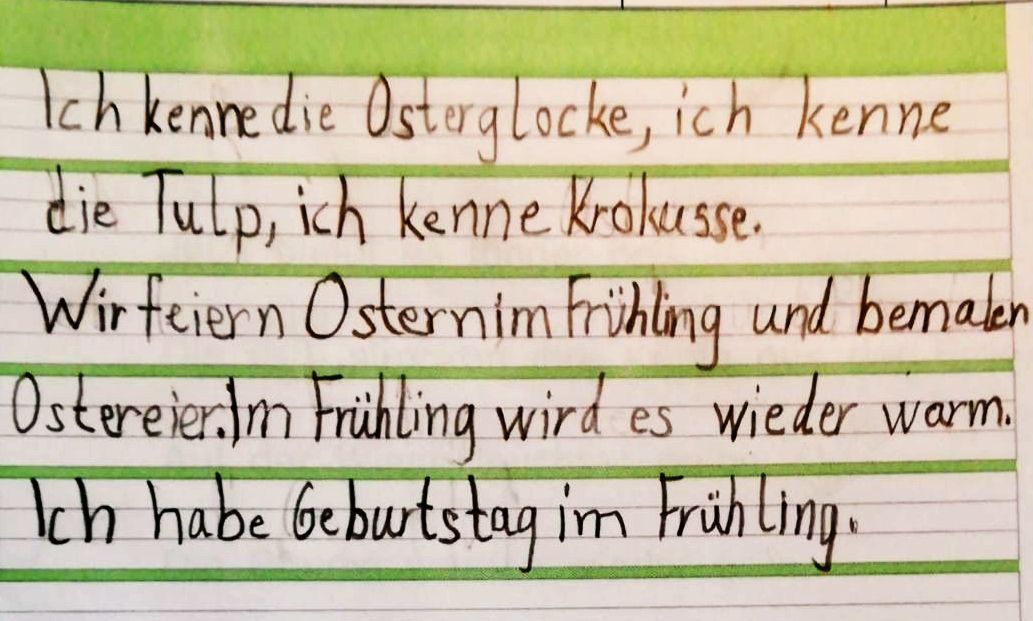 Ich kenne die Osterglocke, ich kenne
die Tulp, ich kenne Krokusse.
Wir feiern Ostern im Frühling und bemalen
Ostereier. Im Frühling wird es wieder warm.
Ich habe Geburtstag im Frühling.